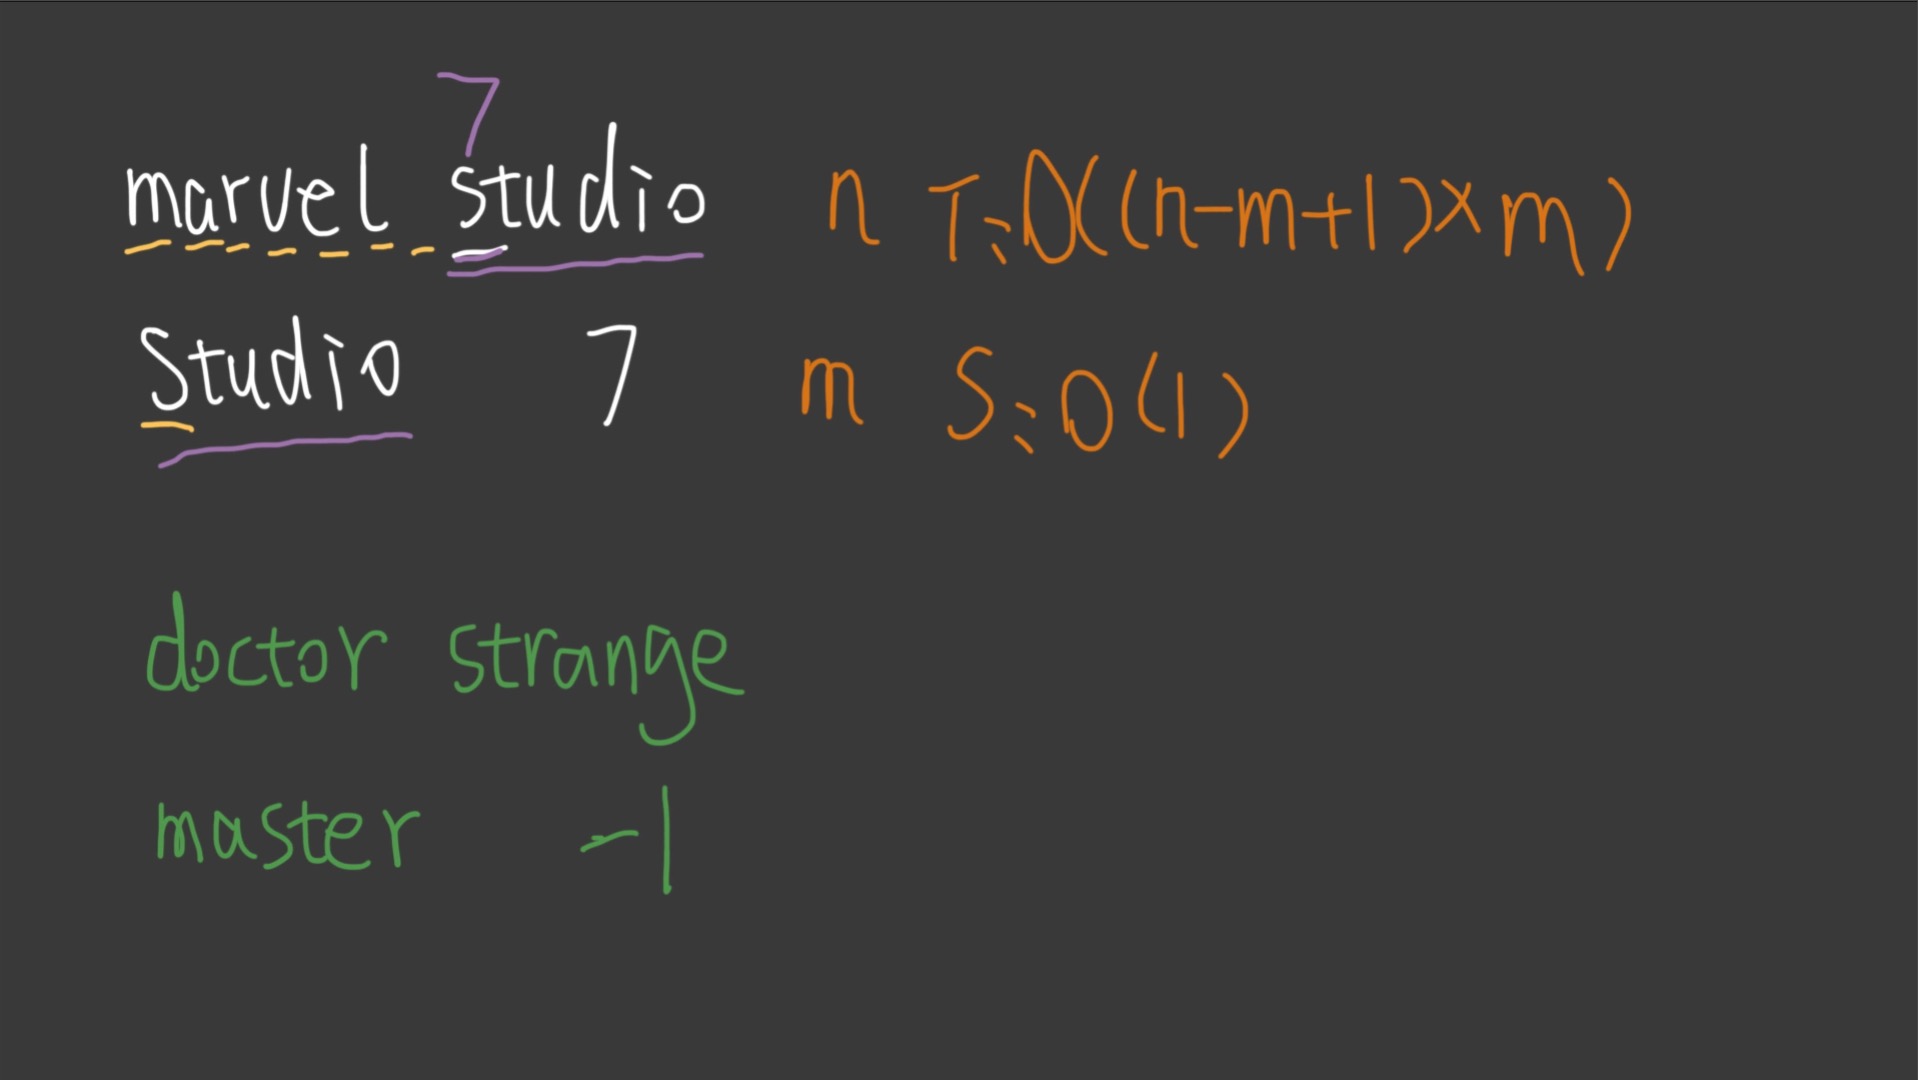 7
marvel studio n T:O((n-m+1)×m)
Studio 7 m S:O(1)
doctor strange
master -1